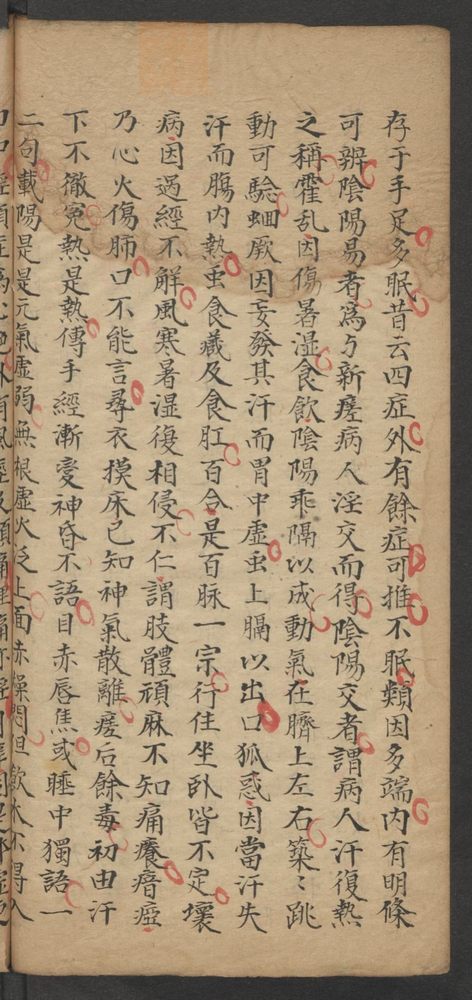 存于手足多眠昔云四症外有餘症可推不眠類因多端内有明條
可辨陰陽易者爲与新瘥病人淫交而得陰陽交者謂病人汗復熱
之稱霍乱因傷暑湿食飲陰陽乖隔以成動氣在臍上左右築〻跳
動可驗蛔厥因妄發其汗而胃中虛虫上膈以出口狐惑因當汗失
汗而膓内熱虫食藏及食肛百合是百脉一宗行住坐卧皆不定壞
病因過經不解風寒暑湿復相侵不仁謂肢體頑麻不知痛癢瘖瘂
乃心火傷肺口不能言尋衣摸床已知神氣散離瘥后餘毒初由汗
下不徹冤熱是熱傳手經漸變神昏不語目赤唇焦或睡中獨語一
二句載陽是是元氣虛弱無根虛火泛上面赤燥悶但飲水不得入